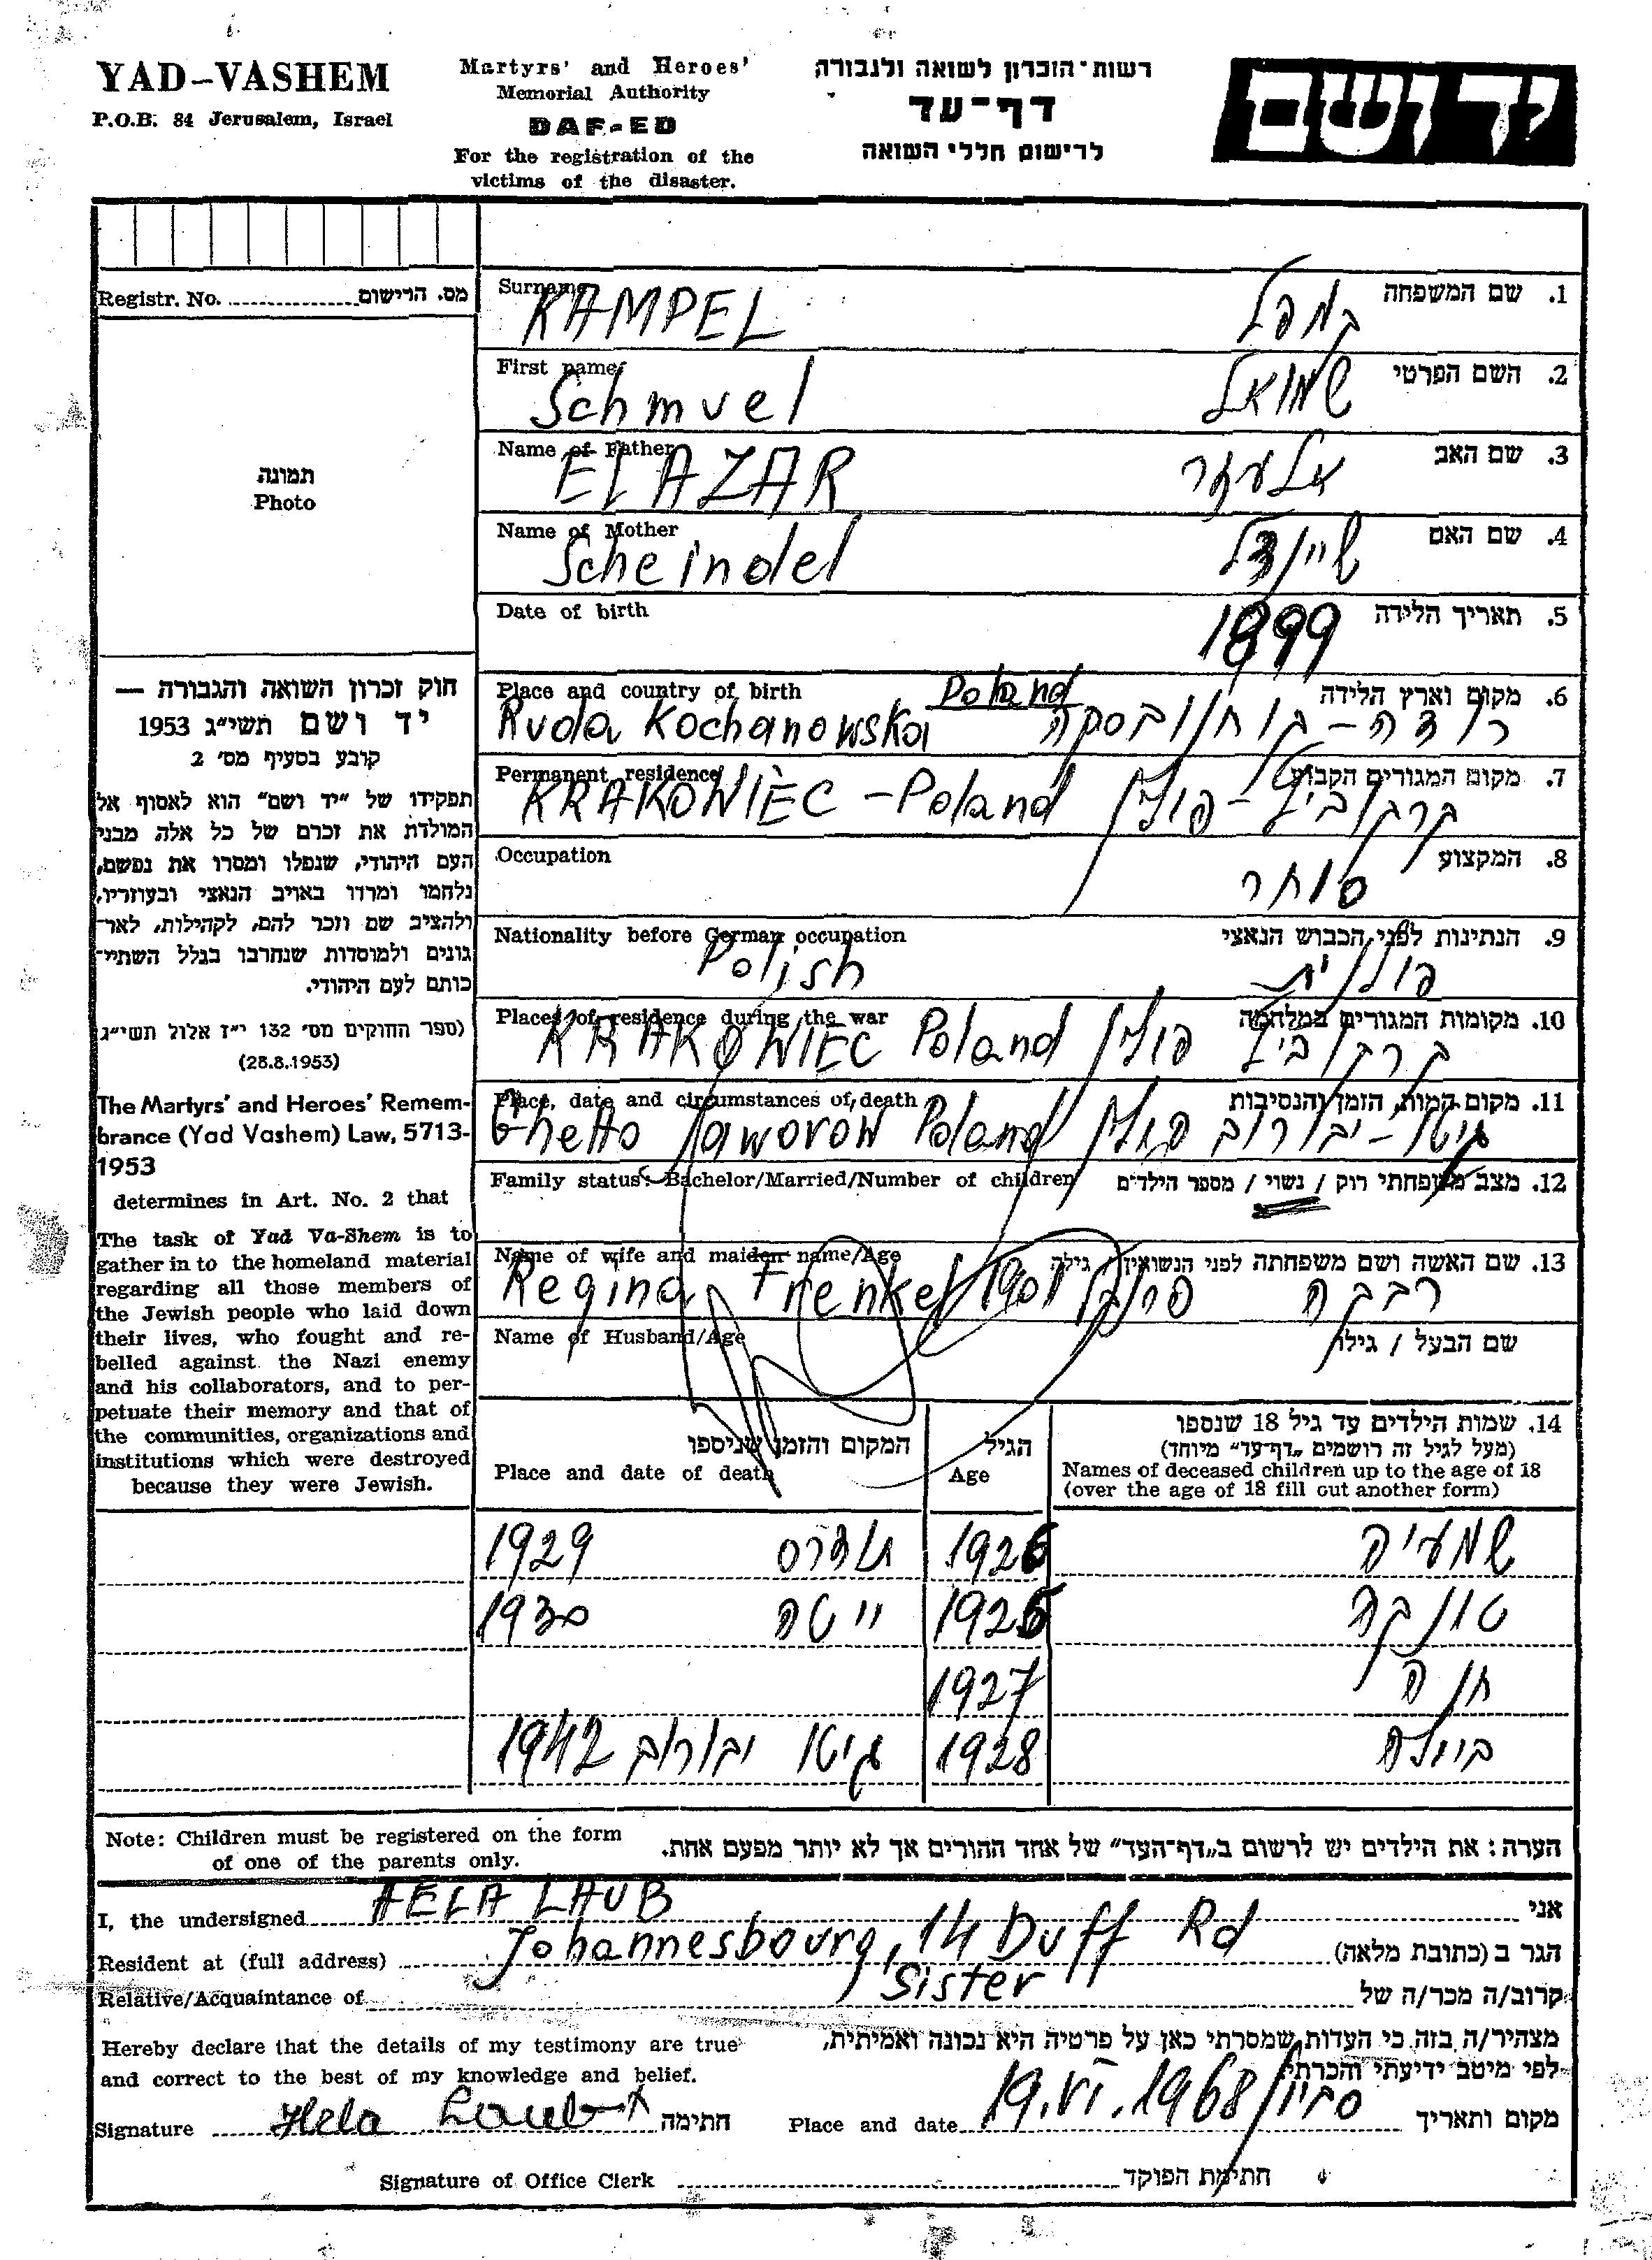 YAD-VASHEM
P.O.B. 84 Jerusalem, Israel
Martyrs' and Heroes'
Memorial Authority
DAF-ED
For the registration of the
victims of the disaster.
רשות־הזכרון לשואה ולגבורה
דף־עד
לרישום חללי השואה
יד ושם
Registr. No. מס. הרישום
תמונה
Photo
חוק זכרון השואה והגבורה —
יד ושם תשי״ג 1953
קובע בסעיף מס׳ 2
תפקידו של ״יד ושם״ הוא לאסוף אל
המולדת את זכרם של כל אלה מבני
העם היהודי, שנפלו ומסרו את נפשם,
נלחמו ומרדו באויב הנאצי ובעוזריו,
ולהציב שם וזכר להם, לקהילות, לאר־
גונים ולמוסדות שנחרבו בגלל השתיי־
כותם לעם היהודי.
(ספר החוקים מס׳ 132 י״ז אלול תשי״ג
(28.8.1953)
The Martyrs' and Heroes' Remem-
brance (Yad Vashem) Law, 5713-
1953
determines in Art. No. 2 that
The task of Yad Va-Shem is to
gather in to the homeland material
regarding all those members of
the Jewish people who laid down
their lives, who fought and re-
belled against the Nazi enemy
and his collaborators, and to per-
petuate their memory and that of
the communities, organizations and
institutions which were destroyed
because they were Jewish.
Surname 1. שם המשפחה
KAMPEL קמפל
First name 2. השם הפרטי
Schmuel שמואל
Name of Father 3. שם האב
ELAZAR אלעזר
Name of Mother 4. שם האם
Scheindel שיינדל
Date of birth 5. תאריך הלידה
1899
Place and country of birth 6. מקום וארץ הלידה
Poland
Ruda Kochanowska רודה-קוחנובסקה
Permanent residence 7. מקום המגורים הקבוע
KRAKOWIEC - Poland קרקוביץ - פולין
Occupation 8. המקצוע
סוחר
Nationality before German occupation 9. הנתינות לפני הכבוש הנאצי
Polish פולנית
Places of residence during the war 10. מקומות המגורים במלחמה
KRAKOWIEC Poland קרקוביץ פולין
Place, date and circumstances of death 11. מקום המות, הזמן והנסיבות
Ghetto Jaworow Poland גיטו-יבורוב פולין
Family status: Bachelor/Married/Number of children 12. מצב משפחתי רוק / נשוי / מספר הילדים
Name of wife and maiden name/Age 13. שם האשה ושם משפחתה לפני הנשואין / גילה
Regina Frenkel 1901 פרנקל רבקה
Name of Husband/Age שם הבעל / גילו
14. שמות הילדים עד גיל 18 שנספו
(מעל לגיל זה רושמים ״דף־עד״ מיוחד)
Names of deceased children up to the age of 18
(over the age of 18 fill out another form)
הגיל
Age
המקום והזמן שניספו
Place and date of death
שמעיה 1926 1929
טונקה 1925 ייטה 1930
חנה 1927
ביילה 1928 גיטו יבורוב 1942
Note: Children must be registered on the form
of one of the parents only.
הערה: את הילדים יש לרשום ב״דף־העד״ של אחד ההורים אך לא יותר מפעם אחת.
I, the undersigned HELA LAUB אני
Resident at (full address) Johannesbourg, 14 Duff Rd הגר ב (כתובת מלאה)
Relative/Acquaintance of Sister קרוב/ה מכר/ה של
Hereby declare that the details of my testimony are true
and correct to the best of my knowledge and belief.
מצהיר/ה בזה כי העדות שמסרתי כאן על פרטיה היא נכונה ואמיתית,
לפי מיטב ידיעתי והכרתי
Signature Hela Laub חתימה
Place and date 19.VI.1968 מקום ותאריך
Signature of Office Clerk חתימת הפוקד